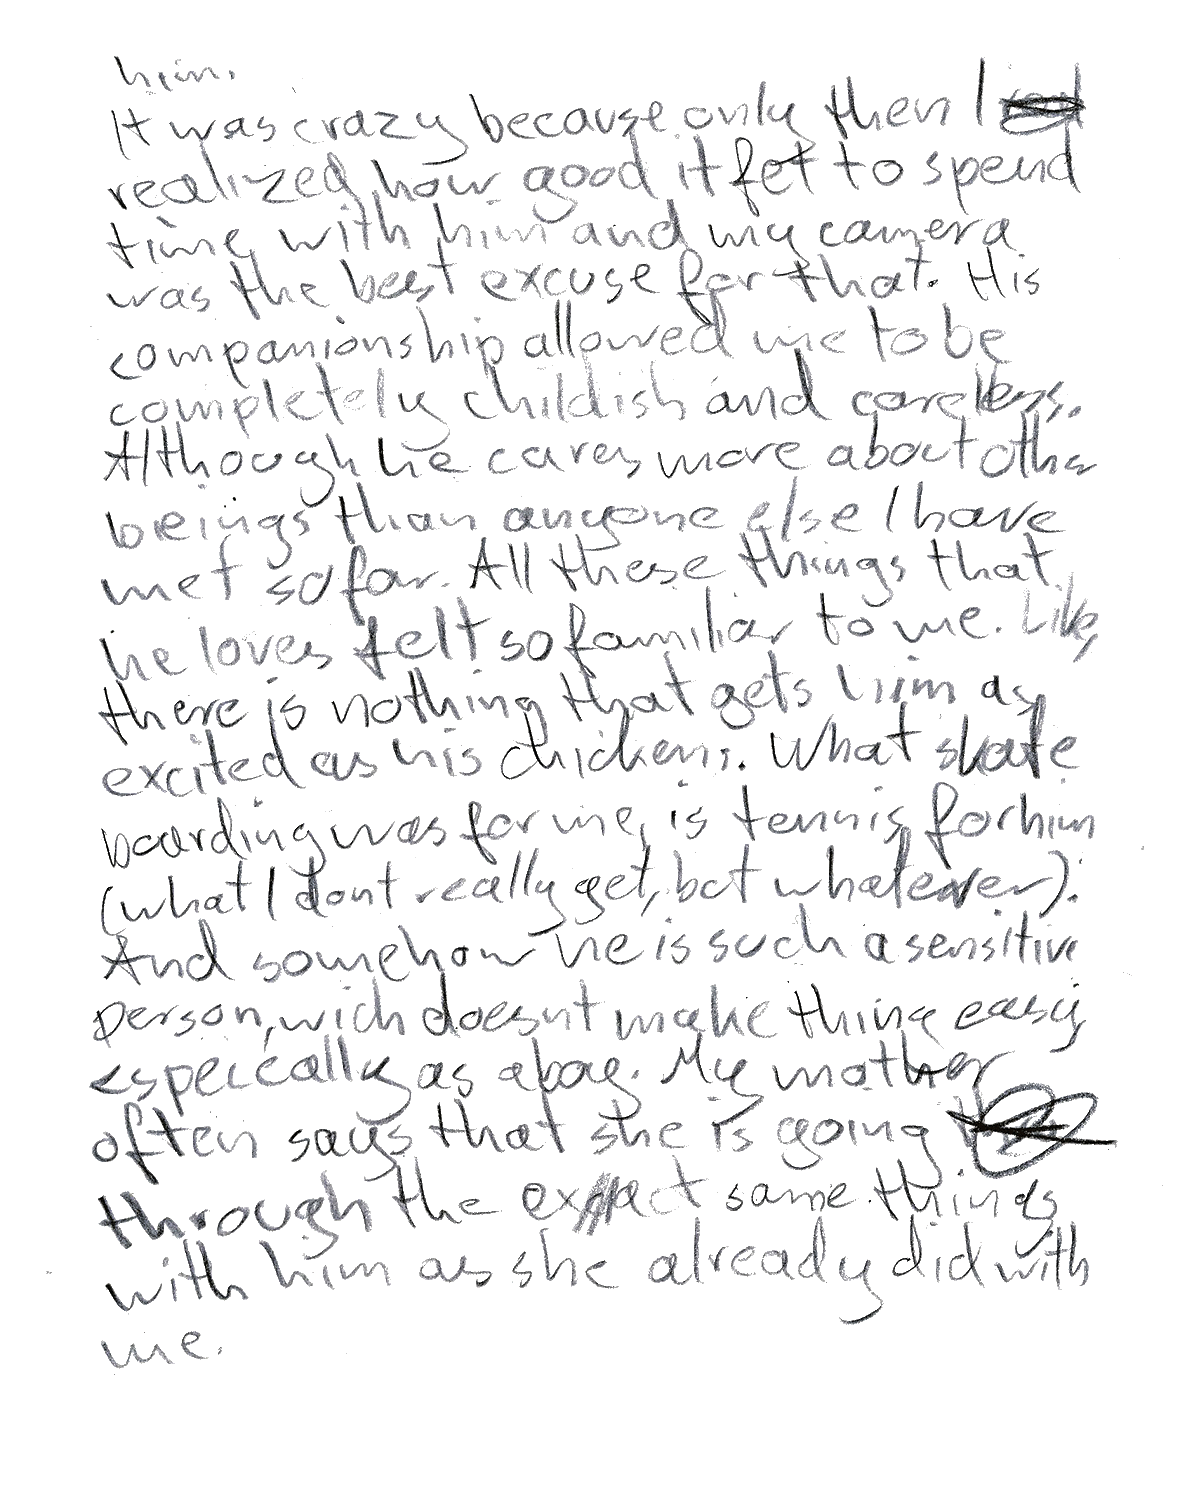 him.
It was crazy because only then I
realized, how good it fet to spend
time with him and my camera
was the best excuse for that. His
companionship allowed me to be
completely childish and careless.
Although he cares more about other
beings than anyone else I have
met so far. All these things that
he loves felt so familiar to me. Like,
there is nothing that gets him as
excited as his chickens. What skate
boarding was for me, is tennis for him
(what I dont really get, but whatever).
And somehow he is such a sensitive
person, wich doesnt make thing easy
especially as a boy. My mother
often says that she is going
through the exact same things
with him as she already did with
me.